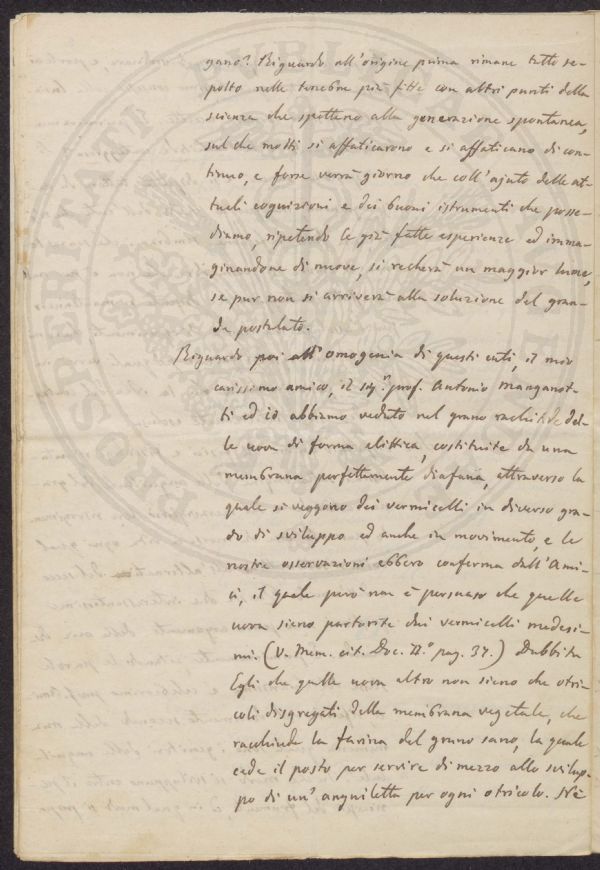 gano? Riguardo all'origine prima rimane tutto se-
polto nelle tenebre più fitte con altri punti della
scienza che spettano alla generazione spontanea,
sul che molti si affaticarono e si affaticano di con-
tinuo, e forse verrà giorno che coll'ajuto delle at-
tuali cognizioni e dei buoni istrumenti che posse-
diamo, ripetendo le già fatte esperienze ed imma-
ginandone di nuove, si recherà un maggior lume,
se pur non si arriverà alla soluzione del gran-
de postulato.
Riguardo poi all'omogenia di questi enti, il mio
carissimo amico, il sig.r prof. Antonio Manganot-
ti ed io abbiamo veduto nel grano rachitide del-
le uova di forma elittica, costituite da una
membrana perfettamente diafana, attraverso la
quale si veggono dei vermicelli in diverso gra-
do di sviluppo ed anche in movimento, e le
nostre osservazioni ebbero conferma dall'Ami-
ci, il quale però non è persuaso che quelle
uova sieno partorite dai vermicelli medesi-
mi. (V. Mem. cit. Doc. II.o pag. 37.) Dubbita
Egli che quelle uova altro non sieno che otri-
coli disgregati della membrana vegetale, che
racchiude la farina del grano sano, la quale
cede il posto per servire di mezzo allo svilup-
po di un'anguilletta per ogni otricolo. Nè
PROSPERITATI PUBLICAE